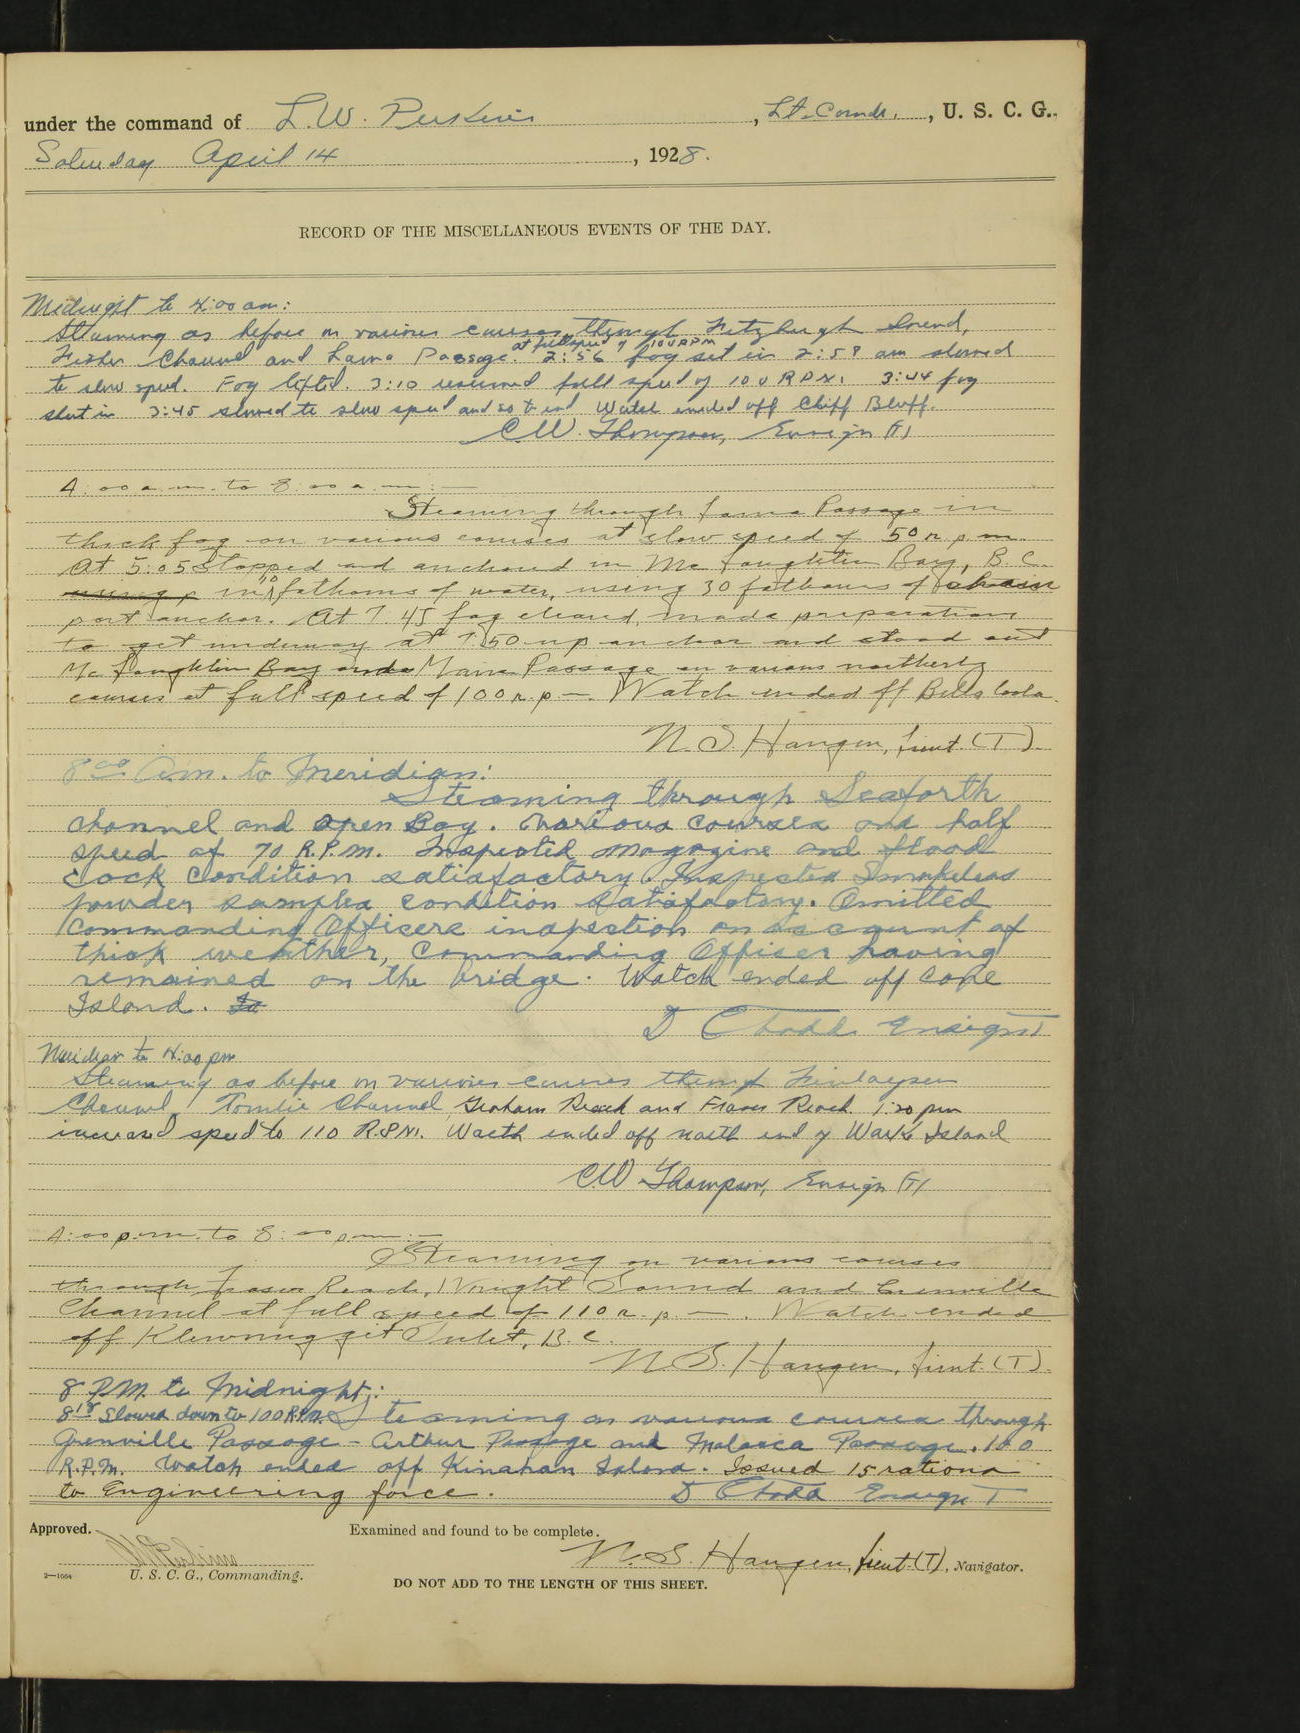 under the command of L. W. Perkins, Lt. Comdr., U. S. C. G.,
Saturday April 14, 1928.
RECORD OF THE MISCELLANEOUS EVENTS OF THE DAY.
Midnight to 4:00 am:
Steaming as before on various courses through Fitzhugh Sound,
at full speed of 100 RPM
Fisher Channel and Lama Passage. 2:56 fog set in 2:58 am slowed
to slow speed. Fog lifted. 3:10 resumed full speed of 100 RPM. 3:44 fog
shut in 3:45 slowed to slow speed and so to end Watch ended off Cliff Bluff.
C.W. Thompson, Ensign (T)
4:00 a.m. to 8:00 a.m.:—
Steaming through Lama Passage in
thick fog on various courses at slow speed of 50 r.p.m.
At 5:05 Stopped and anchored in Mc Laughlin Bay, B.C.
in 10 fathoms of water, using 30 fathoms of chain
port anchor. At 7:45 fog cleared, made preparations
to get underway at 7:50 up anchor and stood out
Mc Laughlin Bay Lama Passage on various northerly
courses at full speed of 100 r.p.m. Watch ended off Bella Coola.
N. S. Haugen, Lieut. (T).
8:00 A.m. to Meridian:
Steaming through Seaforth
Channel and open Bay. Various courses and half
speed of 70 R.P.M. Inspected magazine and flood
cock condition satisfactory. Inspected Smokeless
powder samples condition satisfactory. Omitted
Commanding Officers inspection on account of
thick weather, Commanding Officer having
remained on the bridge. Watch ended off Cone
Island. Is
D C Todd Ensign T
Meridian to 4:00 pm
Steaming as before on various courses through Finlayson
Channel, Tomlie Channel, Graham Reach and Fraser Reach. 1:20 pm
increased speed to 110 R.P.M. Watch ended off north end of Wark Island
C.W. Thompson, Ensign (T)
4:00 p.m. to 8:00 p.m.:—
Steaming on various courses
through Fraser Reach, Wright Sound and Grenville
Channel at full speed of 110 r.p.m. Watch ended
off Klewnuggit Inlet, B.C.
N. S. Haugen, Lieut. (T).
8 P.M. to Midnight:
8:18 Slowed down to 100 R.P.M. Steaming on various courses through
Grenville Passage - Arthur Passage and Malacca Passage. 100
R.P.M. Watch ended off Kinahan Island. Issued 15 rations
to Engineering force.
D C Todd Ensign T
Approved.
Examined and found to be complete.
L W Perkins
N. S. Haugen, Lieut. (T), Navigator.
2—1064
U. S. C. G., Commanding.
DO NOT ADD TO THE LENGTH OF THIS SHEET.